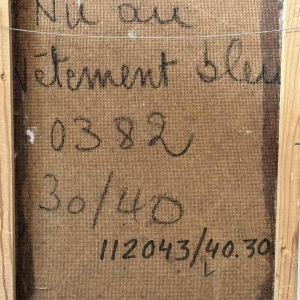 Nu au
vêtement bleu
0382
30/40
112043/40.30